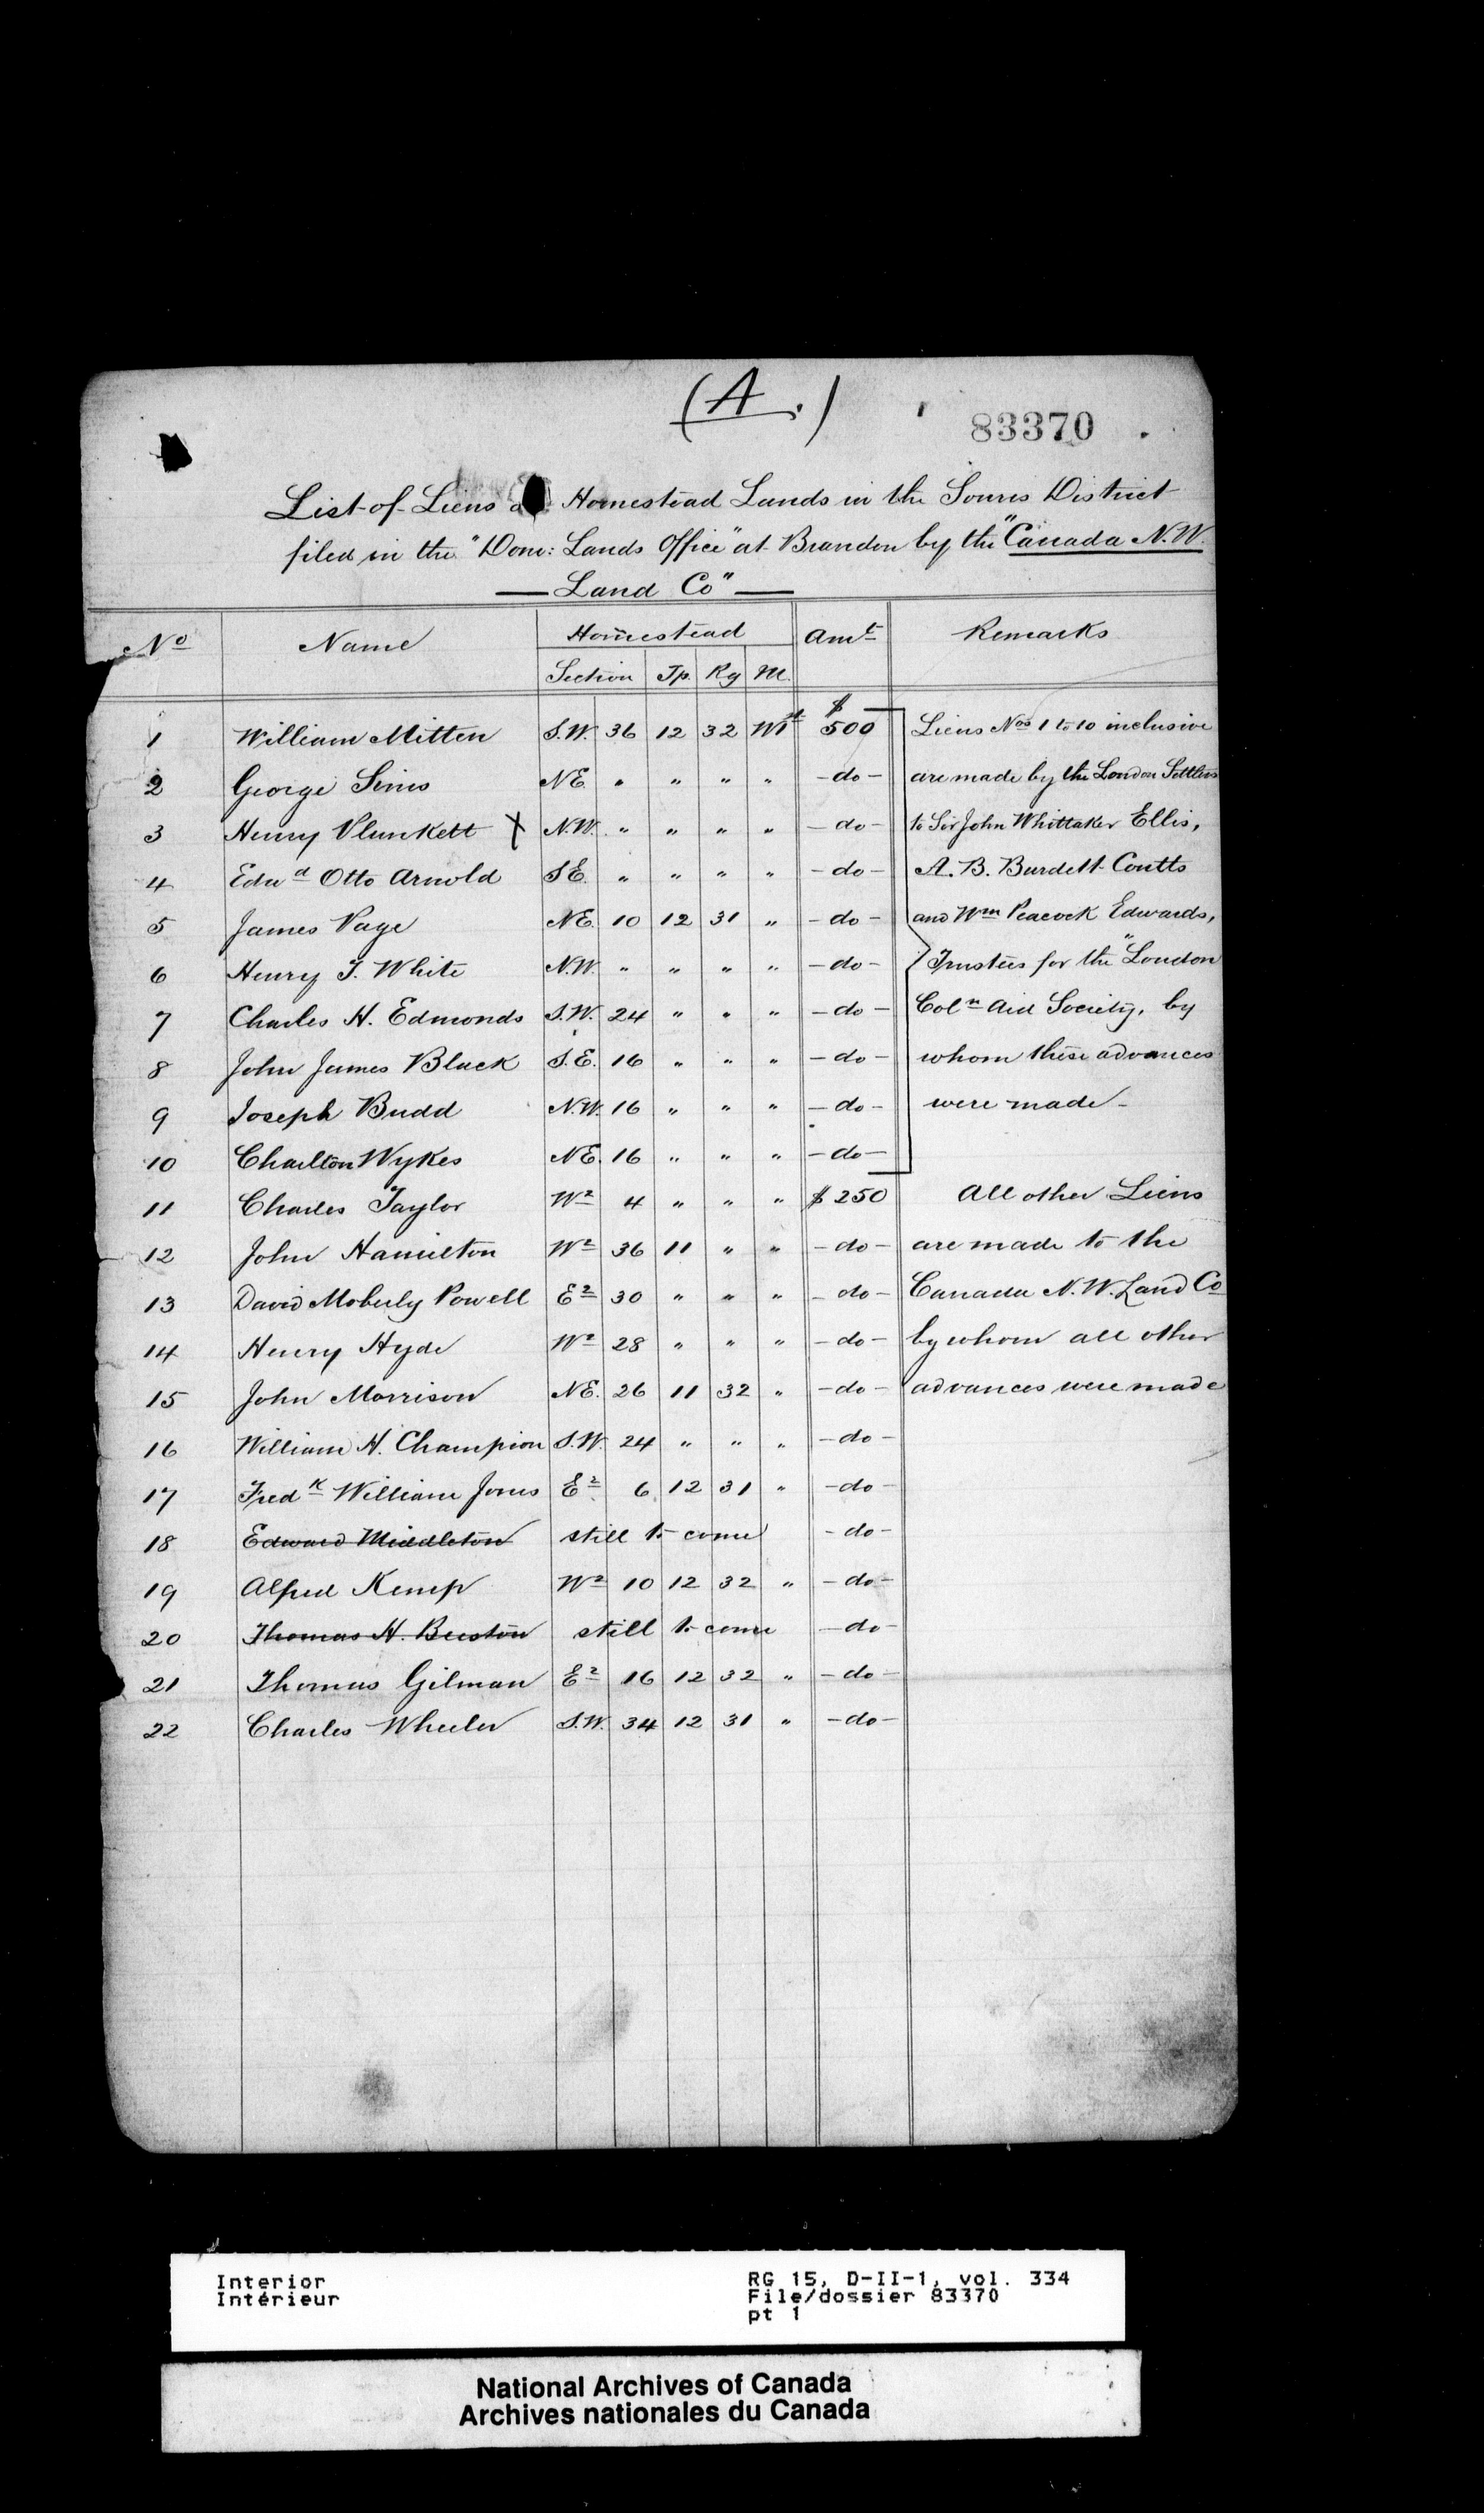 (A.)
83370
List of Liens Homestead Lands in the Souris District
filed in the "Dom: Lands Office" at Brandon by the "Canada N.W.
Land Co"
No Name Homestead Amt Remarks
Section Tp. Rg M.
1 William Mitten S.W. 36 12 32 W1st $500 Liens Nos 1 to 10 inclusive
2 George Sims NE. " " " " -do- are made by the London Settlers
3 Henry Plunkett X N.W. " " " " -do- to Sir John Whittaker Ellis,
4 Edwd Otto Arnold S.E. " " " " -do- A. B. Burdett-Coutts
5 James Page NE. 10 12 31 " -do- and Wm Peacock Edwards,
6 Henry T. White N.W. " " " " -do- Trustees for the "London
7 Charles H. Edmonds S.W. 24 " " " -do- Coln Aid Society, by
8 John James Black S.E. 16 " " " -do- whom these advances
9 Joseph Budd N.W. 16 " " " -do- were made-
10 Charlton Wykes NE. 16 " " " -do-
11 Charles Taylor W2 4 " " " $250 All other Liens
12 John Hamilton W2 36 11 " " -do- are made to the
13 David Moberly Powell E2 30 " " " -do- Canada N.W. Land Co
14 Henry Hyde W2 28 " " " -do- by whom all other
15 John Morrison NE. 26 11 32 " -do- advances were made
16 William H. Champion S.W. 24 " " " -do-
17 Fredk William Jones E2 6 12 31 " -do-
18 Edward Middleton still to come -do-
19 Alfred Kemp W2 10 12 32 " -do-
20 Thomas H. Beeston still to come -do-
21 Thomas Gilman E2 16 12 32 " -do-
22 Charles Wheeler S.W. 34 12 31 " -do-
Interior RG 15, D-II-1, vol. 334
Intérieur File/dossier 83370
pt 1
National Archives of Canada
Archives nationales du Canada